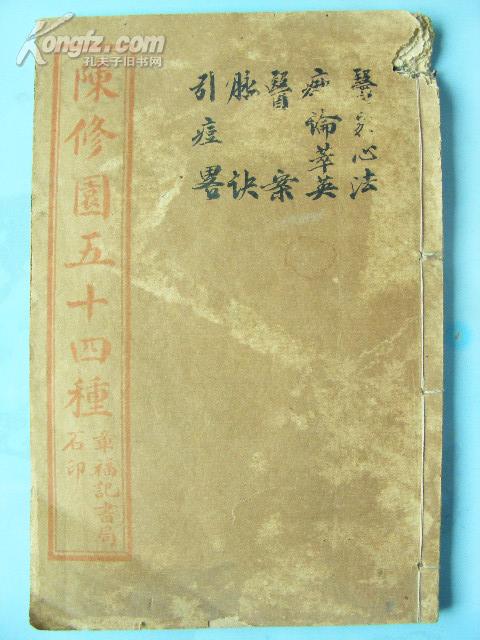 Kongfz.com
孔夫子旧书网
醫家心法
痧論萃英
醫案
脉訣
引痘畧
陳修園五十四種
章福記書局
石印